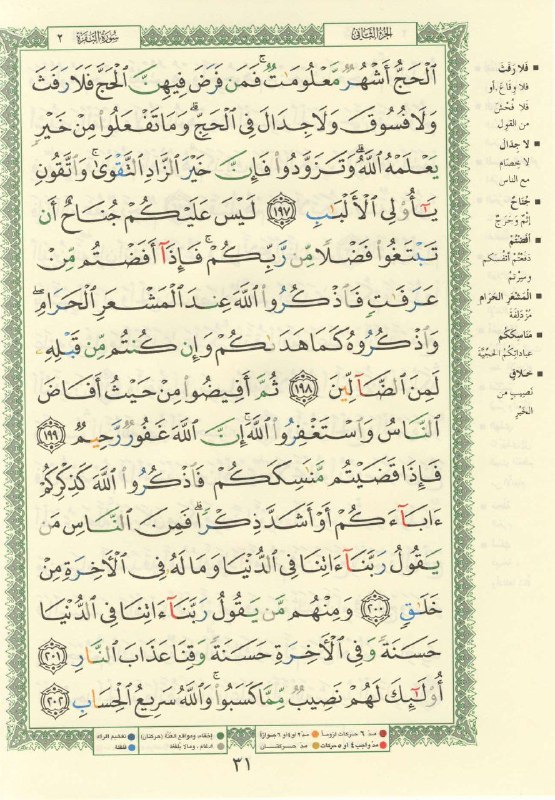 الجزء الثاني
سورة البقرة
٢
ٱلْحَجُّ أَشْهُرٌ مَّعْلُومَٰتٌ ۚ فَمَن فَرَضَ فِيهِنَّ ٱلْحَجَّ فَلَا رَفَثَ
وَلَا فُسُوقَ وَلَا جِدَالَ فِى ٱلْحَجِّ ۗ وَمَا تَفْعَلُوا۟ مِنْ خَيْرٍ
يَعْلَمْهُ ٱللَّهُ ۗ وَتَزَوَّدُوا۟ فَإِنَّ خَيْرَ ٱلزَّادِ ٱلتَّقْوَىٰ ۚ وَٱتَّقُونِ
يَٰٓأُو۟لِى ٱلْأَلْبَٰبِ ١٩٧ لَيْسَ عَلَيْكُمْ جُنَاحٌ أَن
تَبْتَغُوا۟ فَضْلًا مِّن رَّبِّكُمْ ۚ فَإِذَآ أَفَضْتُم مِّنْ
عَرَفَٰتٍ فَٱذْكُرُوا۟ ٱللَّهَ عِندَ ٱلْمَشْعَرِ ٱلْحَرَامِ ۖ
وَٱذْكُرُوهُ كَمَا هَدَىٰكُمْ وَإِن كُنتُم مِّن قَبْلِهِۦ
لَمِنَ ٱلضَّآلِّينَ ١٩٨ ثُمَّ أَفِيضُوا۟ مِنْ حَيْثُ أَفَاضَ
ٱلنَّاسُ وَٱسْتَغْفِرُوا۟ ٱللَّهَ ۚ إِنَّ ٱللَّهَ غَفُورٌ رَّحِيمٌ ١٩٩
فَإِذَا قَضَيْتُم مَّنَٰسِكَكُمْ فَٱذْكُرُوا۟ ٱللَّهَ كَذِكْرِكُمْ
ءَابَآءَكُمْ أَوْ أَشَدَّ ذِكْرًا ۗ فَمِنَ ٱلنَّاسِ مَن
يَقُولُ رَبَّنَآ ءَاتِنَا فِى ٱلدُّنْيَا وَمَا لَهُۥ فِى ٱلْأَخِرَةِ مِنْ
خَلَٰقٍ ٢٠٠ وَمِنْهُم مَّن يَقُولُ رَبَّنَآ ءَاتِنَا فِى ٱلدُّنْيَا
حَسَنَةً وَفِى ٱلْأَخِرَةِ حَسَنَةً وَقِنَا عَذَابَ ٱلنَّارِ ٢٠١
أُو۟لَٰٓئِكَ لَهُمْ نَصِيبٌ مِّمَّا كَسَبُوا۟ ۚ وَٱللَّهُ سَرِيعُ ٱلْحِسَابِ ٢٠٢
■ فَلا رَفَثَ
فلا وِقاعَ، أو
فلا فُحْشَ
من القول
■ لا جِدَالَ
لا خِصَامَ
مع الناس
■ جُنَاحٌ
إثْمٌ وَحَرَجٌ
■ أَفَضْتُمْ
دَفَعْتُمْ أَنْفُسَكم
وسِرْتُمْ
■ المَشْعَرِ الحَرَامِ
مُزْدَلِفَةَ
■ مَناسِكَكُمْ
عباداتِكُمُ الحَجِّيَّةَ
■ خَلاقٍ
نَصِيبٍ من
الخَيْرِ
مدّ ٦ حركات لزوماً
مدّ ٢ أو ٤ أو ٦ جوازاً
إخفاء، ومواقع الغنّة (حركتان)
تفخيم الراء
مدّ واجب ٤ أو ٥ حركات
مدّ حركتان
إدغام، وما لا يُلفظ
قلقلة
٣١